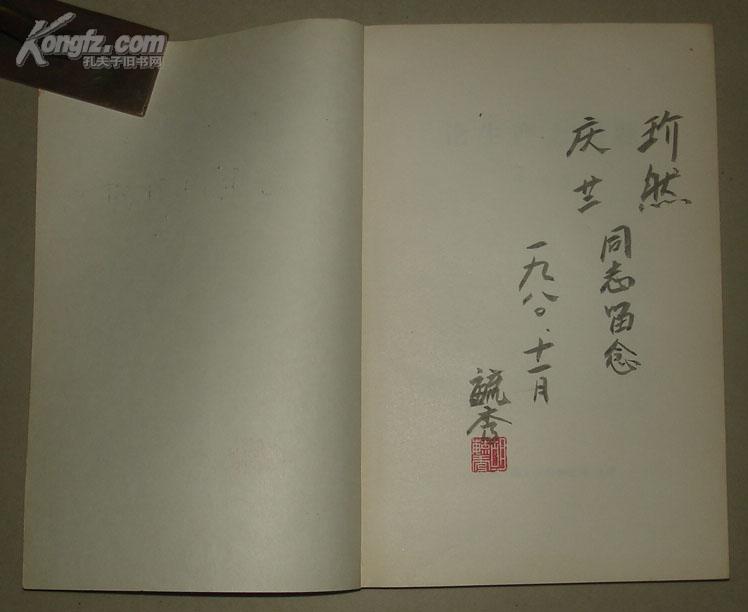 Kongfz.com
孔夫子旧书网
玠然
庆兰
同志留念
一九八〇.十一月
毓秀